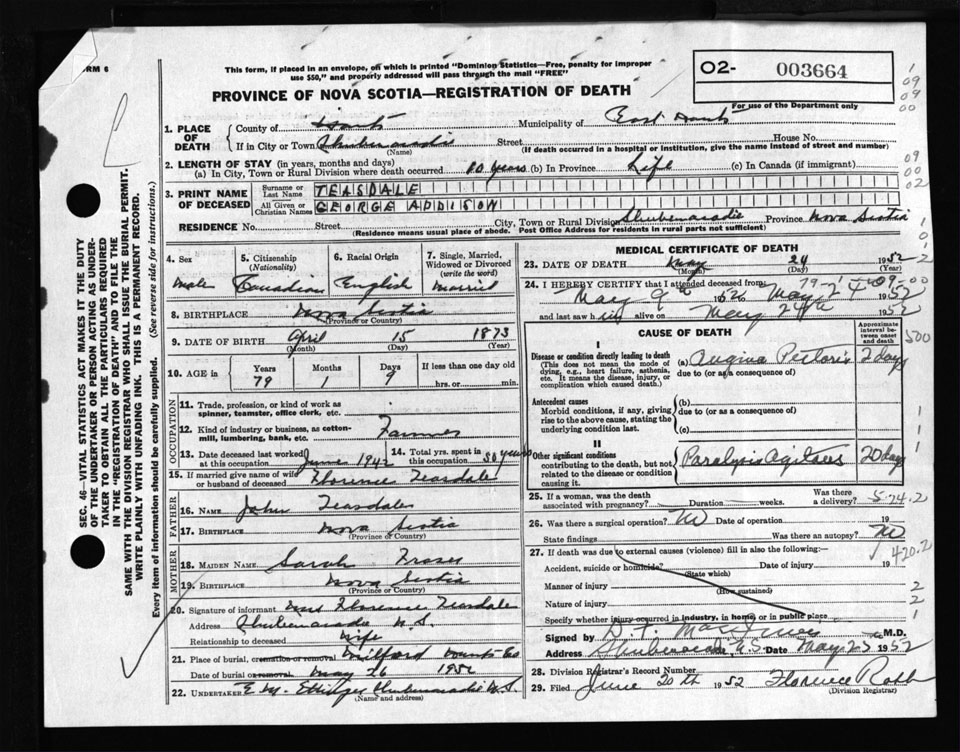 RM 6
This form, if placed in an envelope, on which is printed "Dominion Statistics—Free, penalty for improper
use $50," and properly addressed will pass through the mail "FREE"
PROVINCE OF NOVA SCOTIA—REGISTRATION OF DEATH
02- 003664
For use of the Department only
1. PLACE OF DEATH
County of Hants Municipality of East Hants
If in City or Town Shubenacadie Street House No.
(Name) (If death occurred in a hospital or institution, give the name instead of street and number)
2. LENGTH OF STAY (in years, months and days)
(a) In City, Town or Rural Division where death occurred 10 years (b) In Province Life (c) In Canada (if immigrant)
3. PRINT NAME OF DECEASED
Surname or Last Name TEASDALE
All Given or Christian Names GEORGE ADDISON
RESIDENCE No. Street City, Town or Rural Division Shubenacadie Province Nova Scotia
(Residence means usual place of abode. Post Office Address for residents in rural parts not sufficient)
4. Sex
male
5. Citizenship
(Nationality)
Canadian
6. Racial Origin
English
7. Single, Married,
Widowed or Divorced
(write the word)
Married
8. BIRTHPLACE Nova Scotia
(Province or Country)
9. DATE OF BIRTH April 15 1873
(Month) (Day) (Year)
10. AGE in
Years Months Days If less than one day old
79 1 9 hrs. or min.
OCCUPATION
11. Trade, profession, or kind of work as
spinner, teamster, office clerk, etc.
12. Kind of industry or business, as cotton-
mill, lumbering, bank, etc. Farmer
13. Date deceased last worked
at this occupation June 1942
14. Total yrs. spent in
this occupation 50 years
15. If married give name of wife
or husband of deceased Florence Teasdale
FATHER
16. Name John Teasdale
17. Birthplace Nova Scotia
(Province or Country)
MOTHER
18. Maiden Name Sarah
19. Birthplace Nova Scotia
(Province or Country)
20. Signature of informant Mrs Florence Teasdale
Address Shubenacadie N.S.
Relationship to deceased Wife
21. Place of burial, cremation or removal Milford Hants Co
Date of burial or removal May 26 1952
22. Undertaker E. M. Ettinger Shubenacadie N.S.
(Name and address)
MEDICAL CERTIFICATE OF DEATH
23. DATE OF DEATH May 24 1952
(Month) (Day) (Year)
24. I HEREBY CERTIFY that I attended deceased from:
May 9th 1952 May 24 1952
and last saw him alive on May 24th 1952
CAUSE OF DEATH
Approximate
interval be-
tween onset
and death
I
Disease or condition directly leading to death
(This does not mean the mode of
dying, e.g., heart failure, asthenia,
etc. It means the disease, injury, or
complication which caused death.)
(a) Angina Pectoris 2 days
due to (or as a consequence of)
Antecedent causes
Morbid conditions, if any, giving
rise to the above cause, stating the
underlying condition last.
(b)
due to (or as a consequence of)
(c)
II
Other significant conditions
contributing to the death, but not
related to the disease or condition
causing it.
Paralysis Agitans 20 days
25. If a woman, was the death
associated with pregnancy? Duration weeks. Was there a delivery?
26. Was there a surgical operation? No Date of operation 19
State findings Was there an autopsy? No
27. If death was due to external causes (violence) fill in also the following:—
Accident, suicide or homicide? Date of injury 19
(State which)
Manner of injury
(How sustained)
Nature of injury
Specify whether injury occurred in industry, in home, or in public place
Signed by M.D.
Address Shubenacadie N.S. Date May 25 1952
28. Division Registrar's Record Number
29. Filed June 20th 1952 Florence Robb
(Division Registrar)
SEC. 46—VITAL STATISTICS ACT MAKES IT THE DUTY
OF THE UNDERTAKER OR PERSON ACTING AS UNDER-
TAKER TO OBTAIN ALL THE PARTICULARS REQUIRED
IN THE "REGISTRATION OF DEATH" AND TO FILE THE
SAME WITH THE DIVISION REGISTRAR WHO SHALL ISSUE THE BURIAL PERMIT.
WRITE PLAINLY WITH UNFADING INK. THIS IS A PERMANENT RECORD.
Every item of information should be carefully supplied. (See reverse side for instructions.)
1
09
09
00
09
00
02
500
524.2
420.2
2
2
1